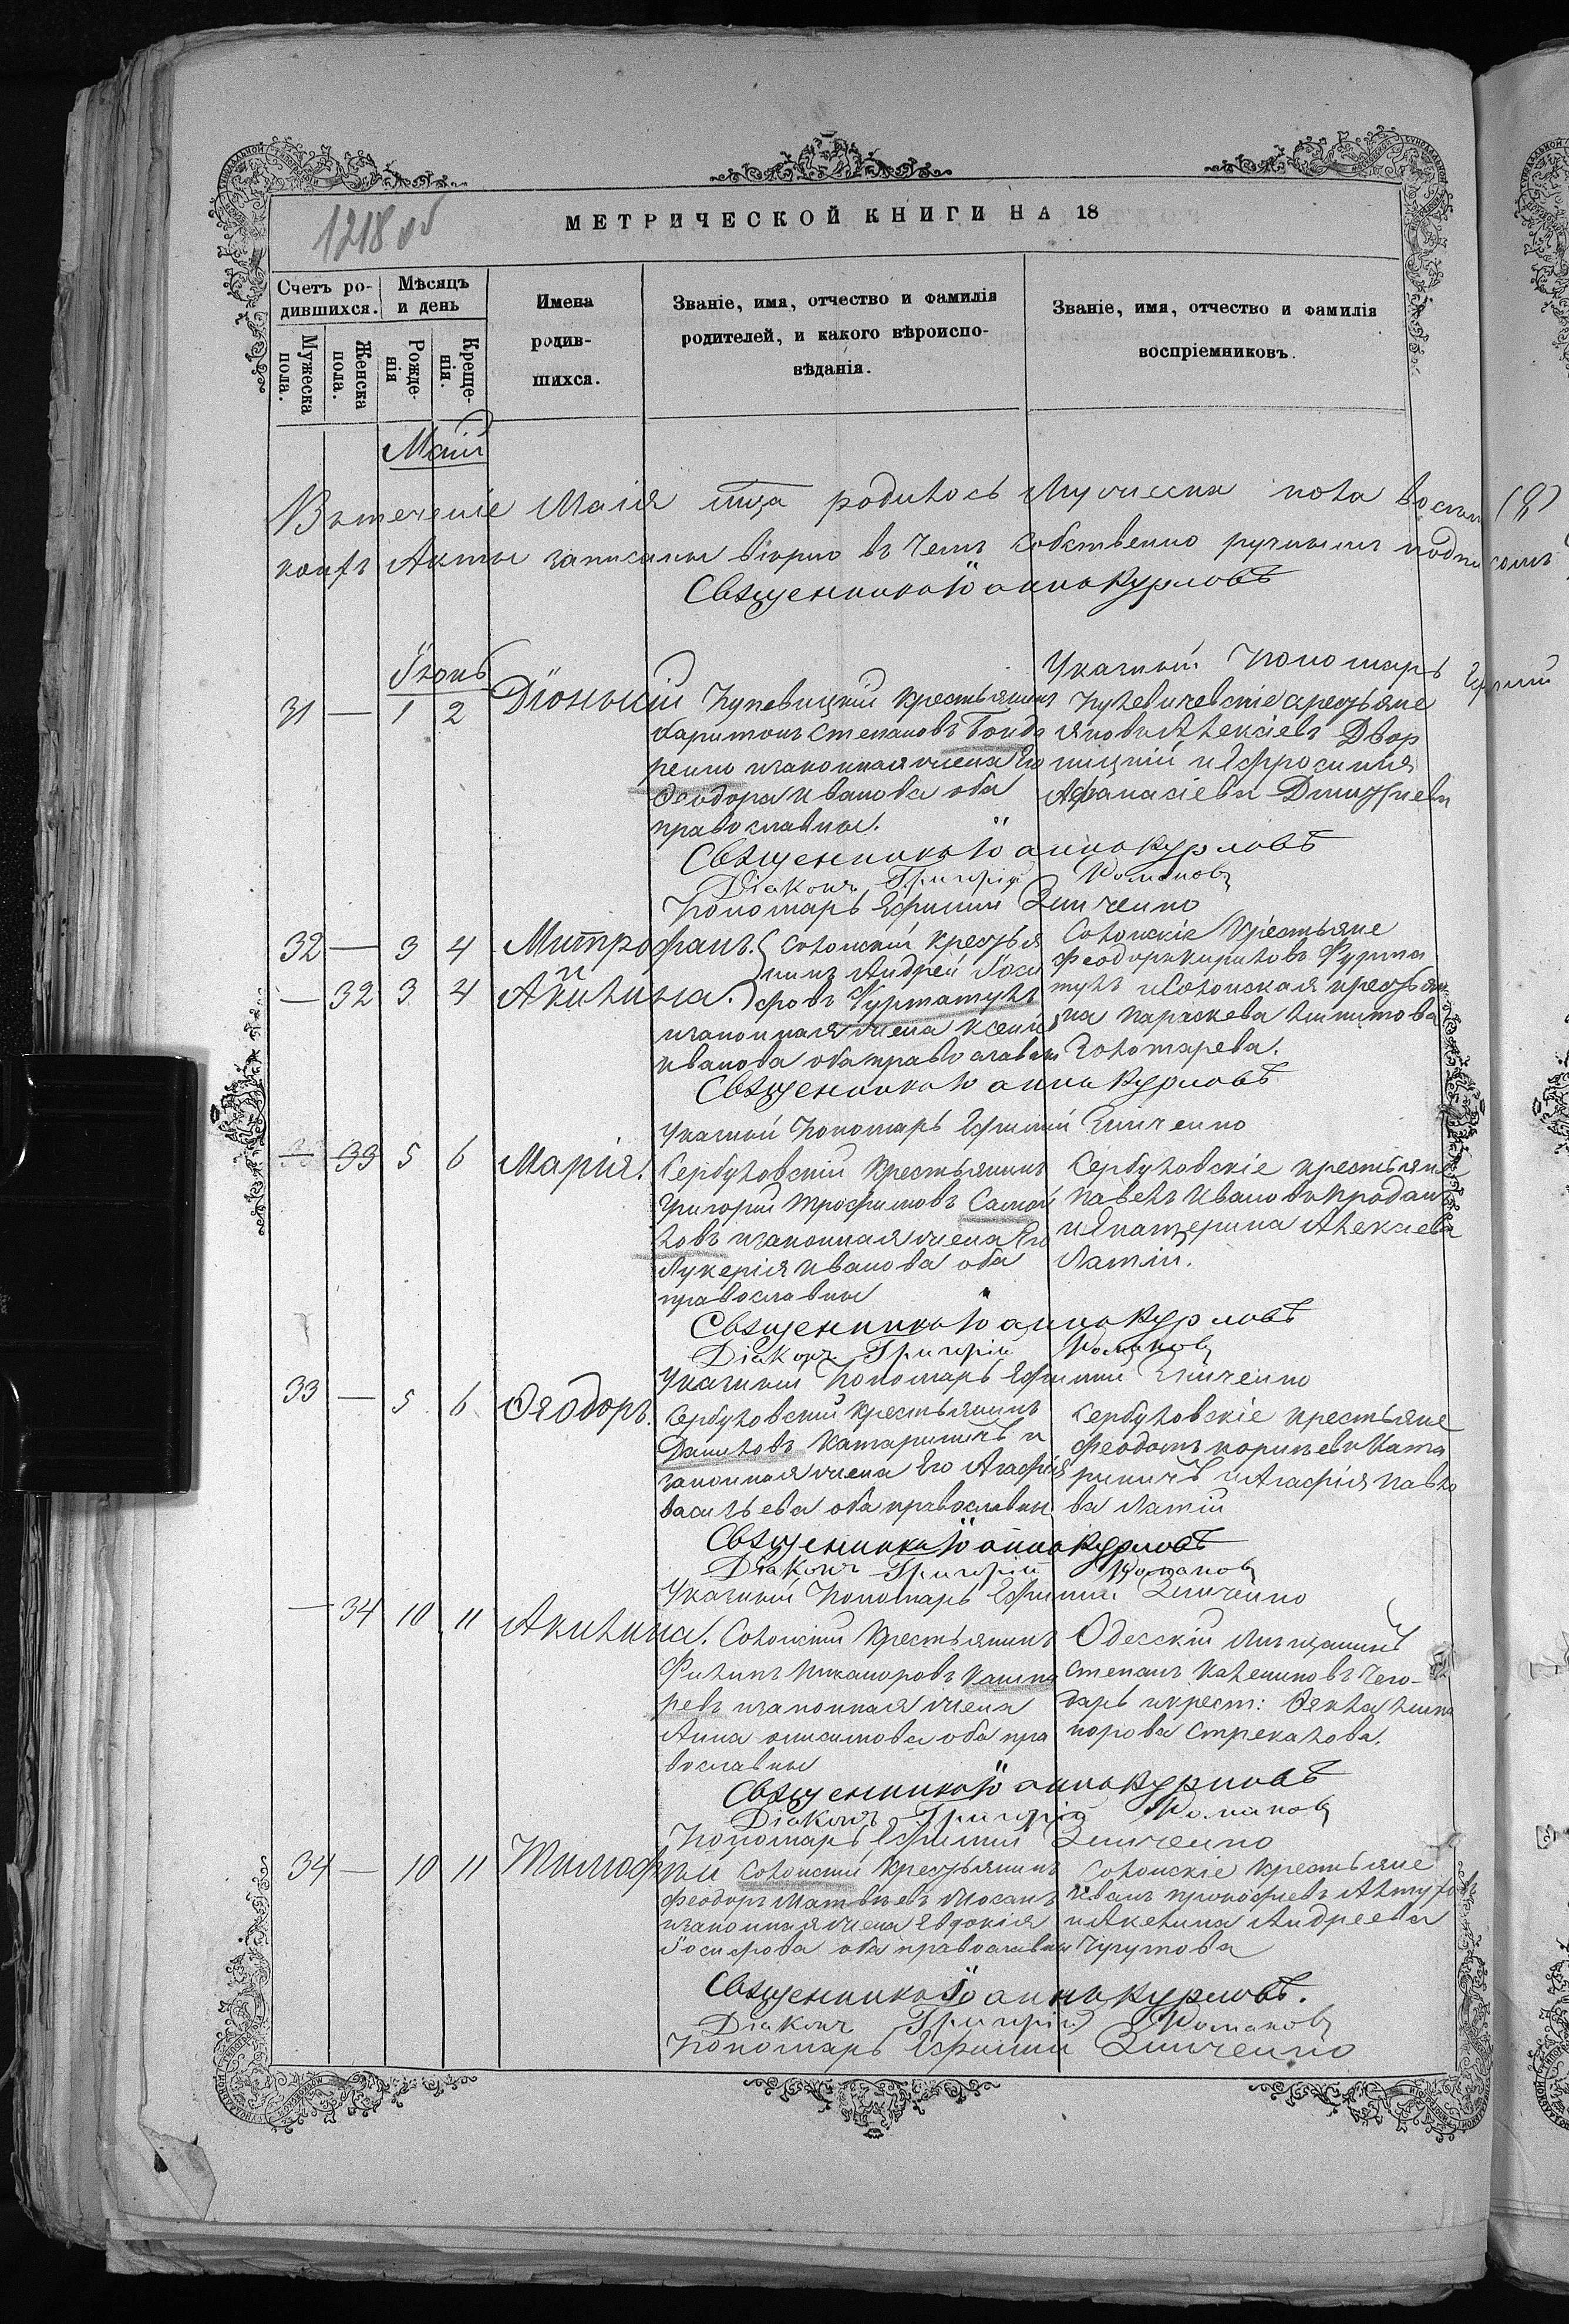 1218 об
МЕТРИЧЕСКОЙ КНИГИ НА 18
Счетъ ро-
дившихся.
Мѣсяцъ
и день
Мужеска
пола.
Женска
пола.
Рожде-
нія
Креще-
нія.
Имена
родив-
шихся.
Званіе, имя, отчество и фамилія
родителей, и какого вѣроиспо-
вѣданія.
Званіе, имя, отчество и фамилія
воспріемниковъ.
Маій
Втеченіе Маія мца родилось Мужеска пола восемь (8)
коихъ Акты записаны вѣрно въ чемъ собственно ручнымъ подписомъ
Священникъ Іоаннъ Курловъ
Указный Пономарь Ефимій
Іюнь
31 — 1 2 Діонисій
Крестьянинъ
Харитонъ Степановъ Бонда
ренко изаконная жена Его
Феодора Иванова оба
православные.
крестьяне
Яковъ Алексіевъ Двор
ницкій и Ефросинія
Афанасіева
Священникъ Іоаннъ Курловъ
Діаконъ Григорій Романовъ
Пономарь Ефимій Зинченко
32 — 3 4 Митрофанъ.
— 32 3 4 Акилина.
крестья
нинъ Андрей Іоси
фовъ Фурматулъ
изаконная жена Ксенія
Иванова оба православны
Крестьяне
Феодоръ Кириловъ Фурма
тулъ
на Параскева
Голомарева.
Священникъ Іоаннъ Курловъ
Указный Пономарь Ефимій Зинченко
— 33 5 6 Марія.
Сербуловскій Крестьянинъ
Григорій Трофимовъ Самой
ловъ изаконная жена Его
Лукерія Иванова оба
православны
Сербуловскіе крестьяне
Павелъ Ивановъ Проданъ
и Екатерина Алексіева
Латій.
Священникъ Іоаннъ Курловъ
Діаконъ Григорій Романовъ
Указный Пономарь Ефимій Зинченко
33 — 5 6 Феодоръ.
Сербуловскій крестьянинъ
Даниловъ Катариничъ и
законная жена Его Агафія
Васильева оба православны
Сербуловскіе крестьяне
Феодотъ Корнѣевъ Ката
риничъ и Агафія Павло
ва Латій
Священникъ Іоаннъ Курловъ
Діаконъ Григорій Романовъ
Указный Пономарь Ефимій Зинченко
— 34 10 11 Акилина.
Крестьянинъ
Филипъ Никаноровъ Кашка
ревъ изаконная жена
Анна Онисимова оба пра
вославны
Одесскій Мѣщанинъ
Степанъ
дарь и крест: Фекла Ника
норова Стрекалова.
Священникъ Іоаннъ Курловъ
Діаконъ Григорій Романовъ
Пономарь Ефимій Зинченко
34 — 10 11 Тимофей
крестьянинъ
Феодоръ Матвѣевъ
изаконная жена Евдокія
Іосифова оба православны
крестьяне
Иванъ Прокофіевъ
и Акелина Андреева
Чугутова
Священникъ Іоаннъ Курловъ.
Діаконъ Григорій Романовъ
Пономарь Ефимій Зинченко